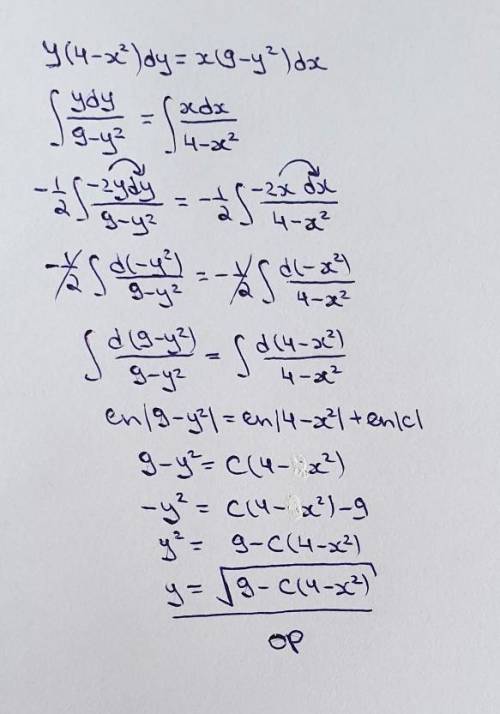 y(4-x²)dy = x(9-y²)dx
∫ ydy/9-y² = ∫ xdx/4-x²
-1/2 ∫ -2ydy/9-y² = -1/2 ∫ -2x dx/4-x²
-1/2 ∫ d(-y²)/9-y² = -1/2 ∫ d(-x²)/4-x²
∫ d(9-y²)/9-y² = ∫ d(4-x²)/4-x²
ln|9-y²| = ln|4-x²| + ln|c|
9-y² = C(4-x²)
-y² = C(4-x²)-9
y² = 9-C(4-x²)
y = √9-C(4-x²)
OP